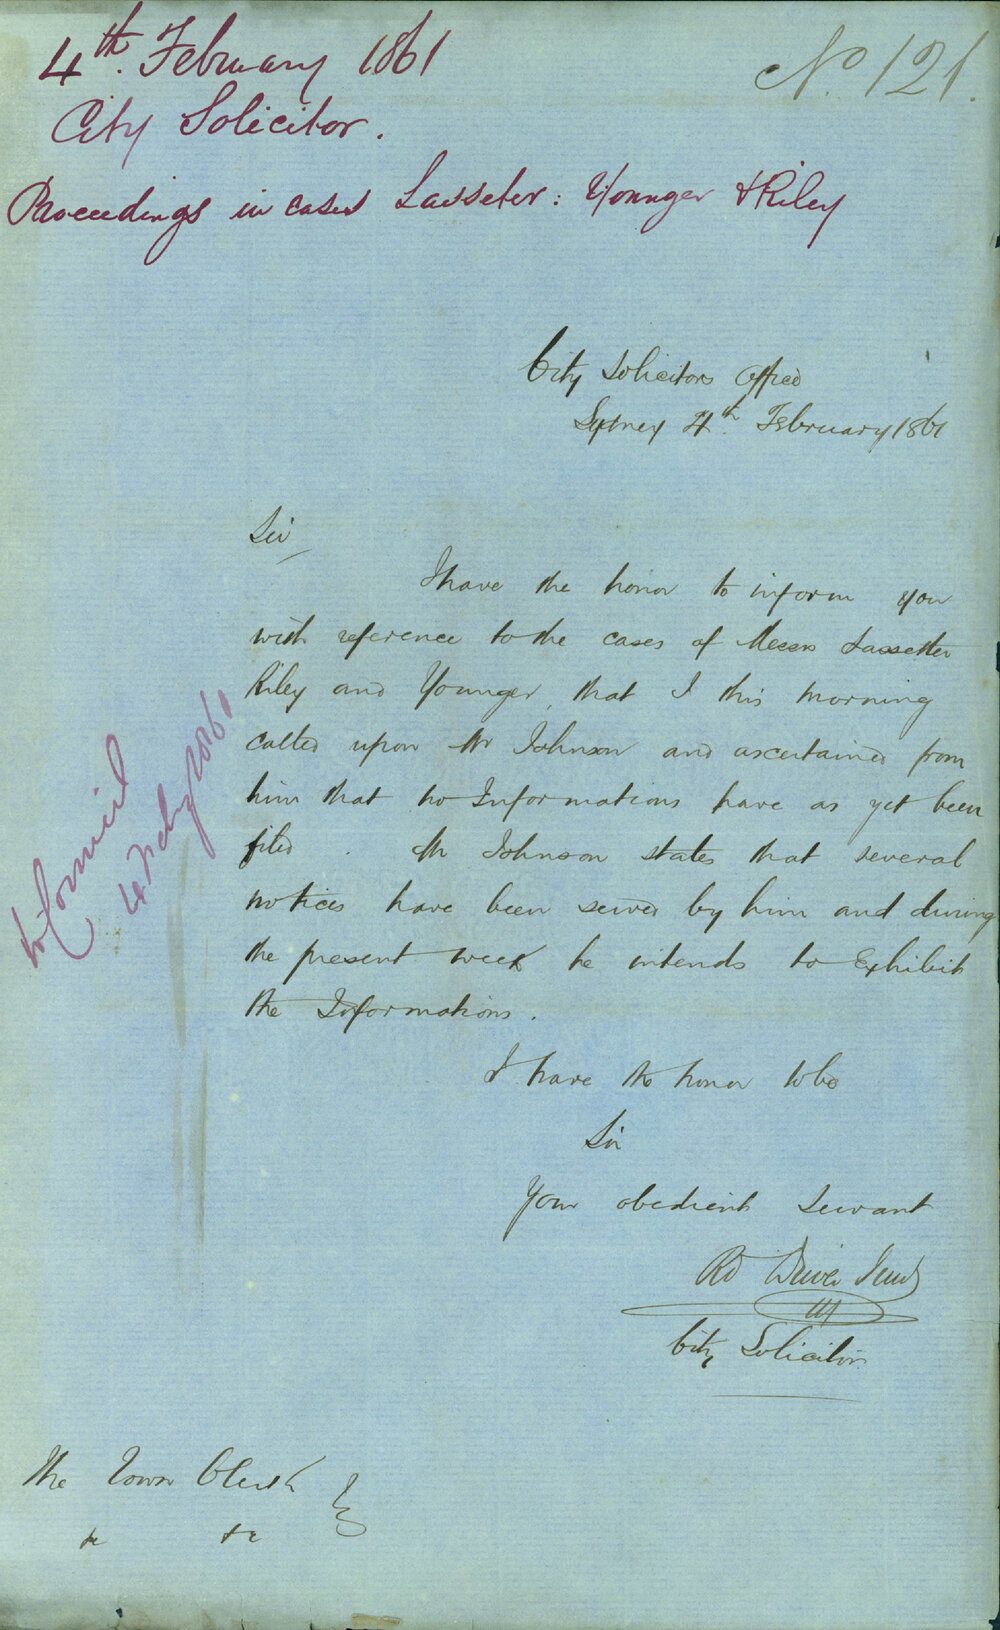 4th. February 1861
No. 121.
City Solicitor.
Proceedings in cases Lasseter: Younger & Riley
City Solicitors Office
Sydney 4th. February 1861
Sir
I have the honor to inform you
with reference to the cases of Messrs Lassetter
Riley and Younger, that I this morning
called upon Mr Johnson and ascertained from
him that no Informations have as yet been
filed. Mr Johnson states that several
notices have been served by him and during
the present week he intends to Exhibit
the Informations.
I have the honor to be
Sir
Your obedient Servant
Rd Driver Junr
City Solicitor
to Council
4 Feby 1861
The Town Clerk
&c &c